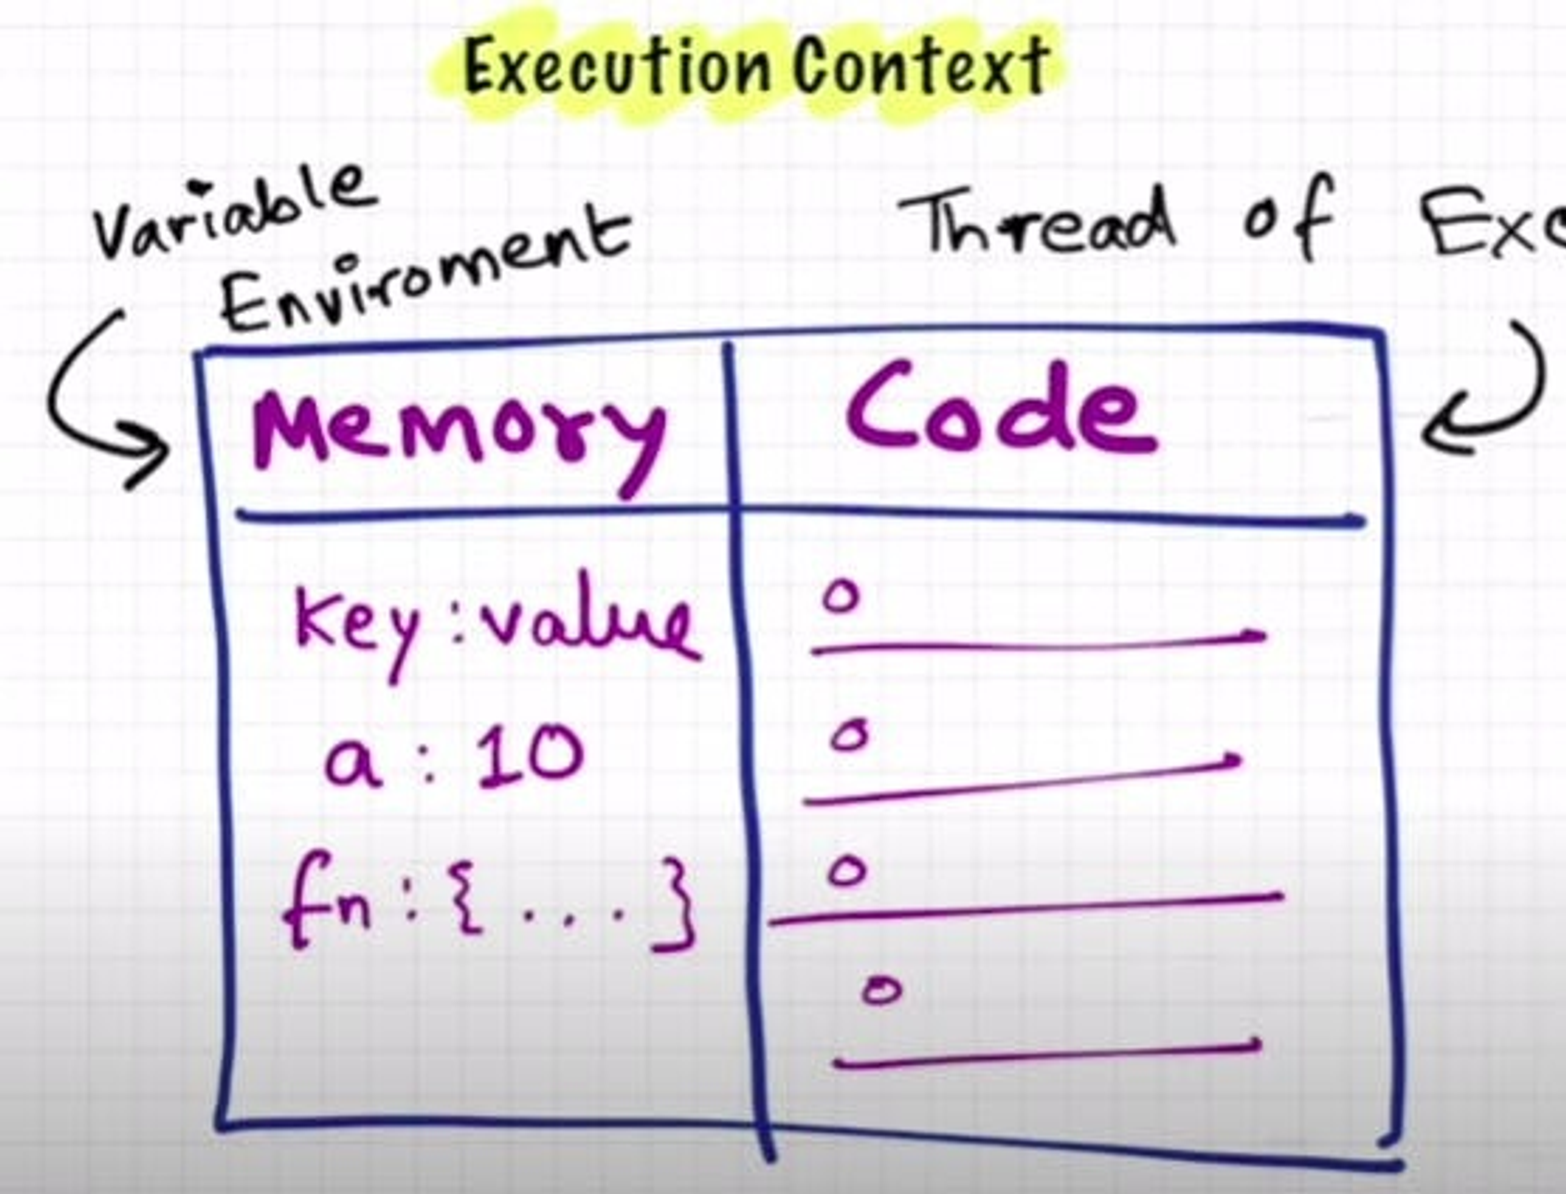 Execution Context
Variable
Enviroment
Thread of Exe
Memory
Code
key:value
a : 10
fn : { ... }